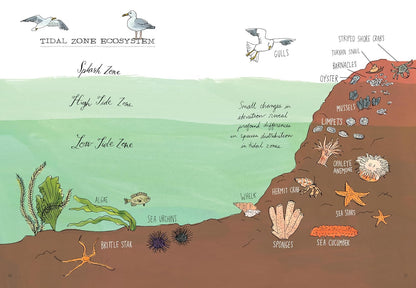 TIDAL ZONE ECOSYSTEM
GULLS
STRIPED SHORE CRABS
TURBAN SNAIL
BARNACLES
OYSTER
Splash Zone
High Tide Zone
MUSSELS
Small changes in
elevation reveal
profound differences
in species distribution
in tidal zones.
LIMPETS
Low Tide Zone
OPALEYE
ANEMONE
HERMIT CRAB
ALGAE
WHELK
SEA STARS
SEA URCHINS
BRITTLE STAR
SPONGES
SEA CUCUMBER